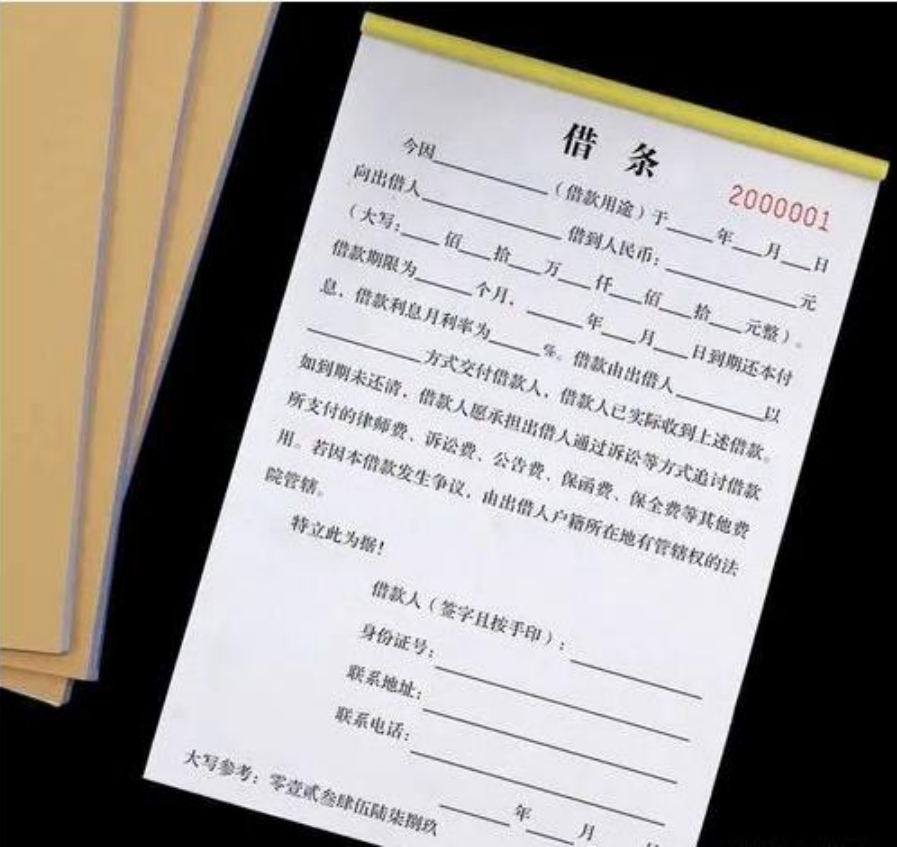 借 条
2000001
今因________（借款用途）于____年___月___日
向出借人__________借到人民币：__________元
（大写：___佰___拾___万___仟___佰___拾___元整）。
借款期限为_____个月，_____年___月___日到期还本付
息，借款利息月利率为____%。借款由出借人________以
________方式交付借款人，借款人已实际收到上述借款。
如到期未还清，借款人愿承担出借人通过诉讼等方式追讨借款
所支付的律师费、诉讼费、公告费、保函费、保全费等其他费
用。若因本借款发生争议，由出借人户籍所在地有管辖权的法
院管辖。
特立此为据！
借款人（签字且按手印）：__________
身份证号：__________
联系地址：__________
联系电话：__________
_____年_____月
大写参考：零壹贰叁肆伍陆柒捌玖